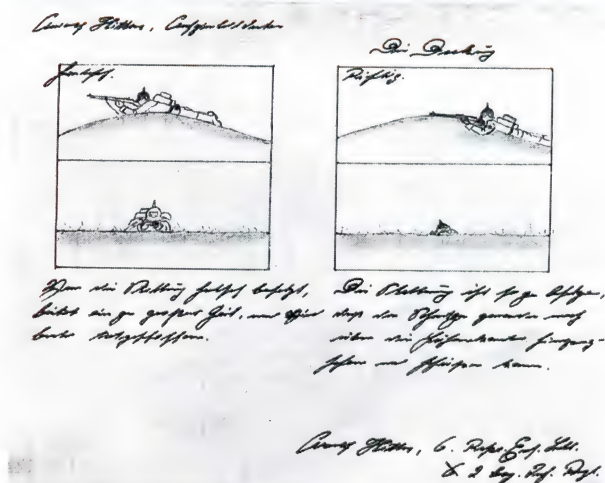 Hitler,
Die Deckung
Falsch.
Richtig.
Wer die Stellung falsch besetzt,
bietet ein zu großes Ziel, und wird
totgeschossen.
Die Stellung ist so zu
daß der Schütze gerade noch
über die hinweg-
sehen und schießen kann.
Hitler, 6. Ers.
2 Bay. Inf. Rgt.